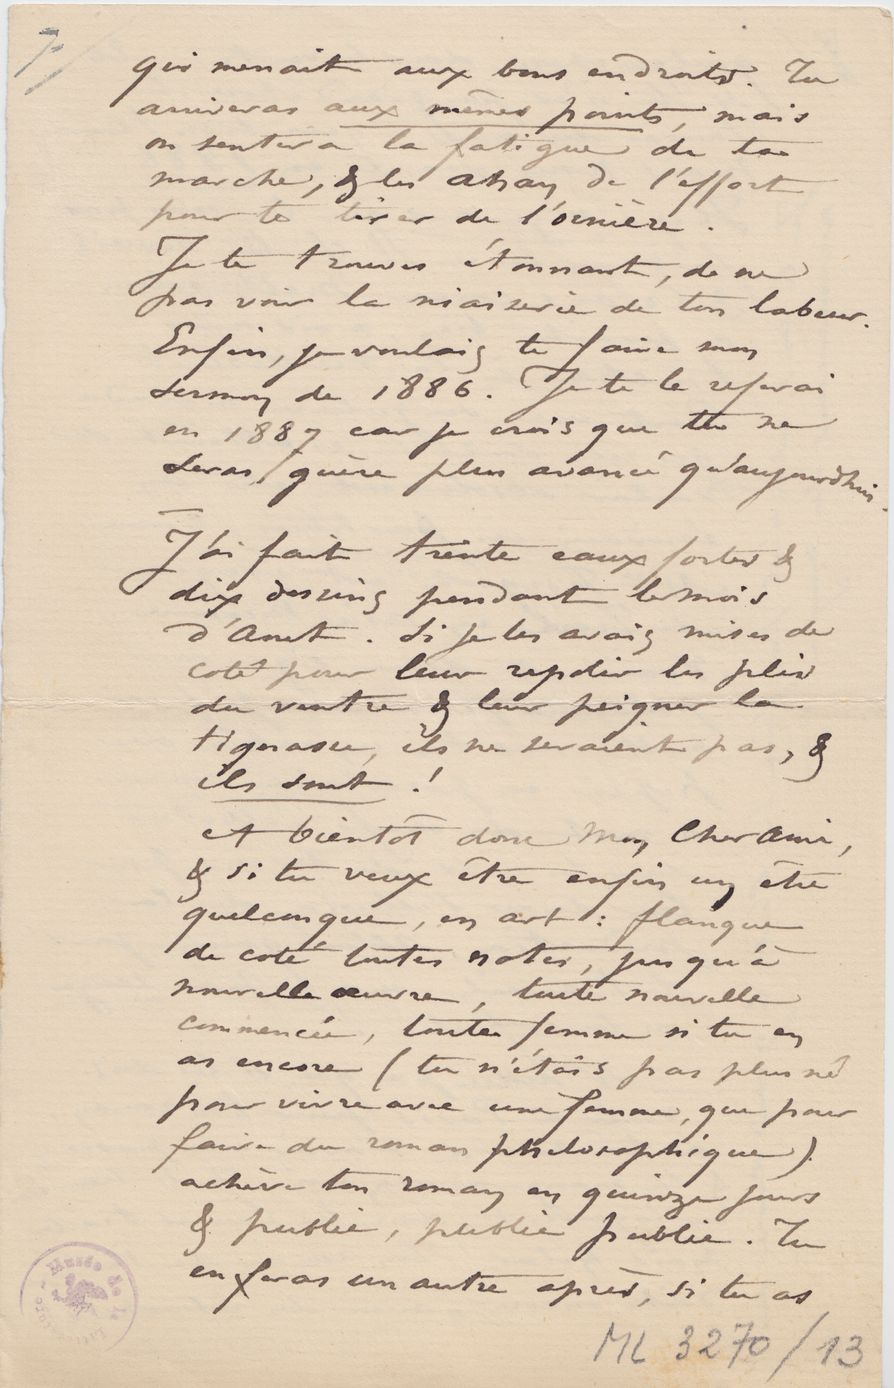 7/
qui menait aux bons endroits. Tu
arriveras aux mêmes points, mais
on sentira la fatigue de ta
marche, & les ahan de l'effort
pour te tirer de l'ornière.
Je te trouves étonnant, de ne
pas voir la niaiserie de ton labeur.
Enfin, je voulais te faire mon
sermon de 1886. Je te le referai
en 1887 car je crois que tu ne
seras guère plus avancé qu'aujourd'hui.
—
J'ai fait trente eaux fortes &
dix dessins pendant le mois
d'Aout. Si je les avais mises de
coté pour leur les plis
du ventre & leur peigner la
tignasse, ils ne seraient pas, &
ils sont !
A bientôt donc Mon Cher Ami,
& si tu veux être enfin un être
quelconque, en art : flanque
de coté toutes notes, jusqu'à
nouvelle œuvre, toute nouvelle
commencée, toute femme si tu en
as encore (tu n'étais pas plus né
pour vivre avec une femme, que pour
faire du roman philosophique)
achève ton roman en quinze jours
& publie, publie publie. Tu
en feras un autre après, si tu as
Musée de la
ML 3270/13